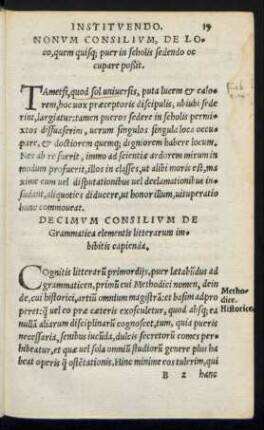 INSTITVENDO. 19
NONVM CONSILIVM, DE LO-
co, quem quisq; puer in scholis sedendo oc
cupare possit.
TAmetsi, quod sol uniuersis, puta lucem & calo-
rem, hoc uox præceptoris discipulis, ubiubi sede
rint, largiatur: tamen pueros sedere in scholis permi-
xtos dissuaserim, uerum singulos singula loca occu-
pare, & doctiorem quemq; digniorem habere locum.
Nec ab re fuerit, immo ad scientiæ ardorem mirum in
modum profuerit, illos in classes, ut alibi moris est, ma
xime cum uel disputationibus uel declamationibus in-
sudant, aliquoties diducere, ut honor illum, uituperatio
hunc commoueat.
DECIMVM CONSILIVM DE
Grammatica elementis litterarum im-
bibitis capienda.
COgnitis litterarũ primordijs, puer lætabũdus ad
grammaticen, primũ cui Methodici nomen, dein
de, cui historici, artiũ omnium magistrã: et basim ad pro
peret: q̃ uel eo præ cæteris exosculetur, quod absq; ea
nullũ aliarum disciplinarũ cognoscet, tum, quia pueris
necessaria, senibus iucũda, dulcis secretorũ comes per-
hibeatur, et quæ uel sola omniũ studiorũ genere plus ha
beat operis q̃ ostẽtationis. Hinc minime eos tulerim, qui
Metho-
dice.
Historice.
B 2 hanc